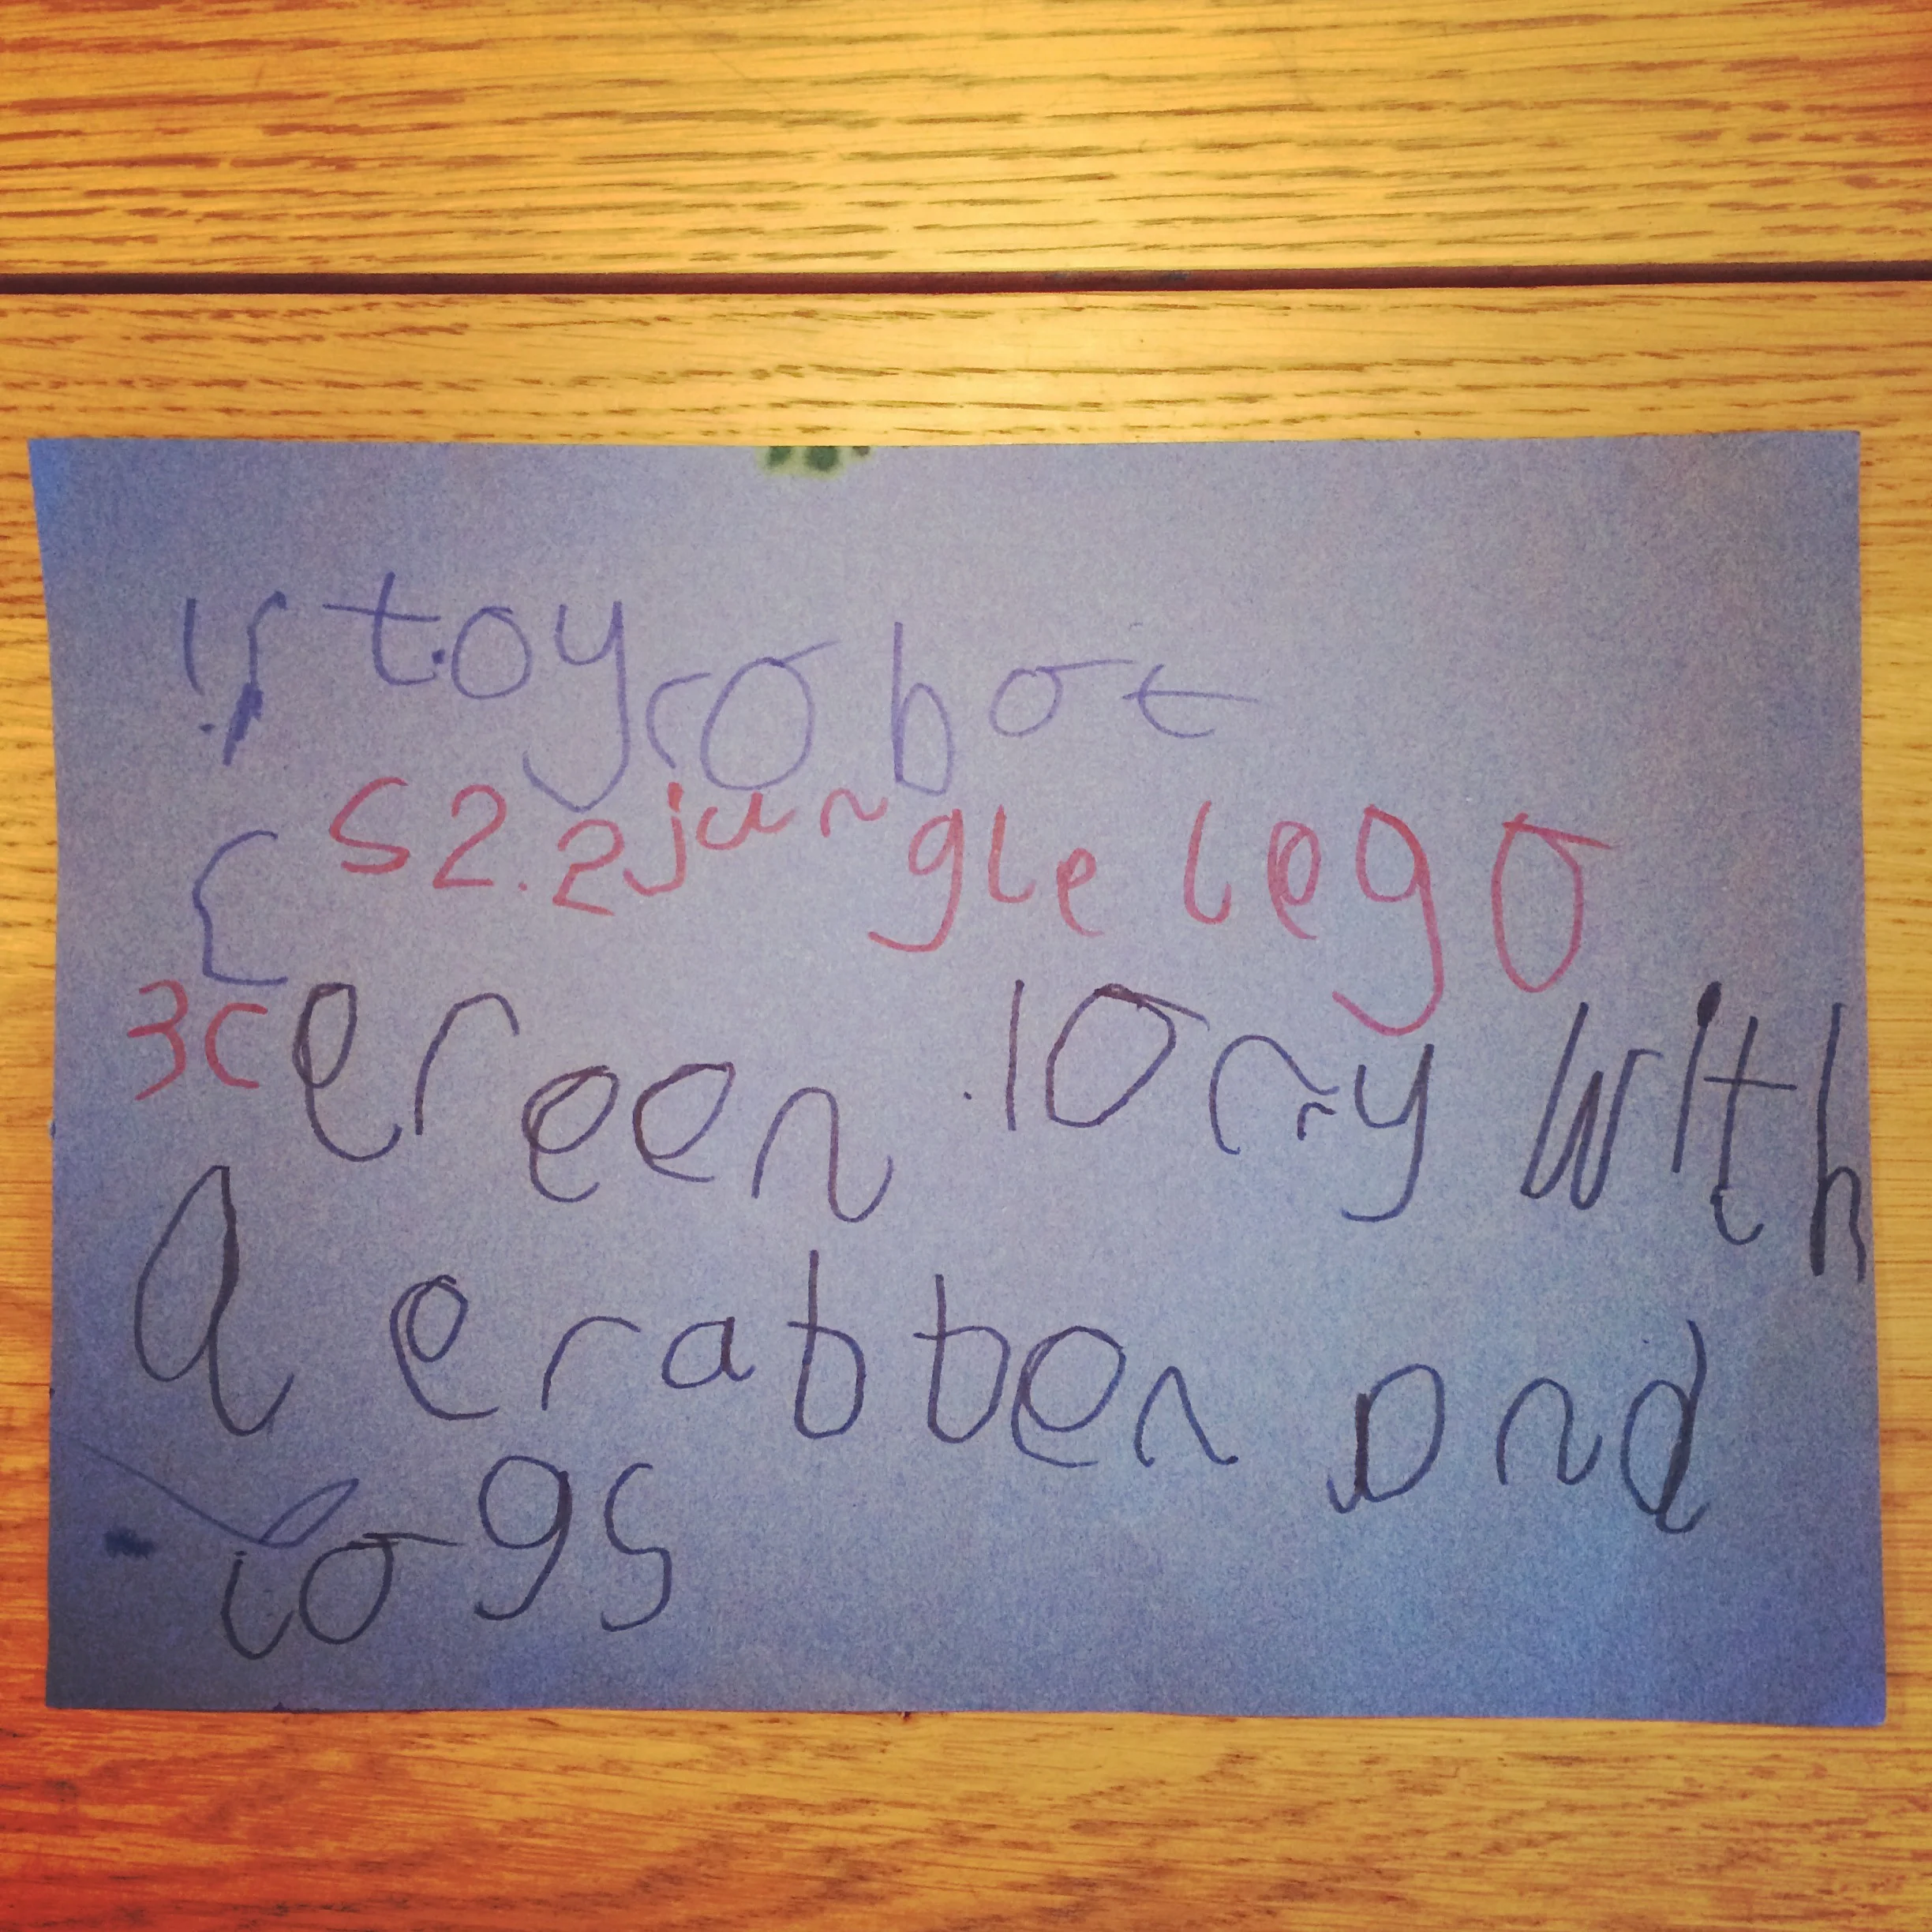 1 toy robot
2. 2 jungle lego
3 cereen lorry with
a erabben and
logs